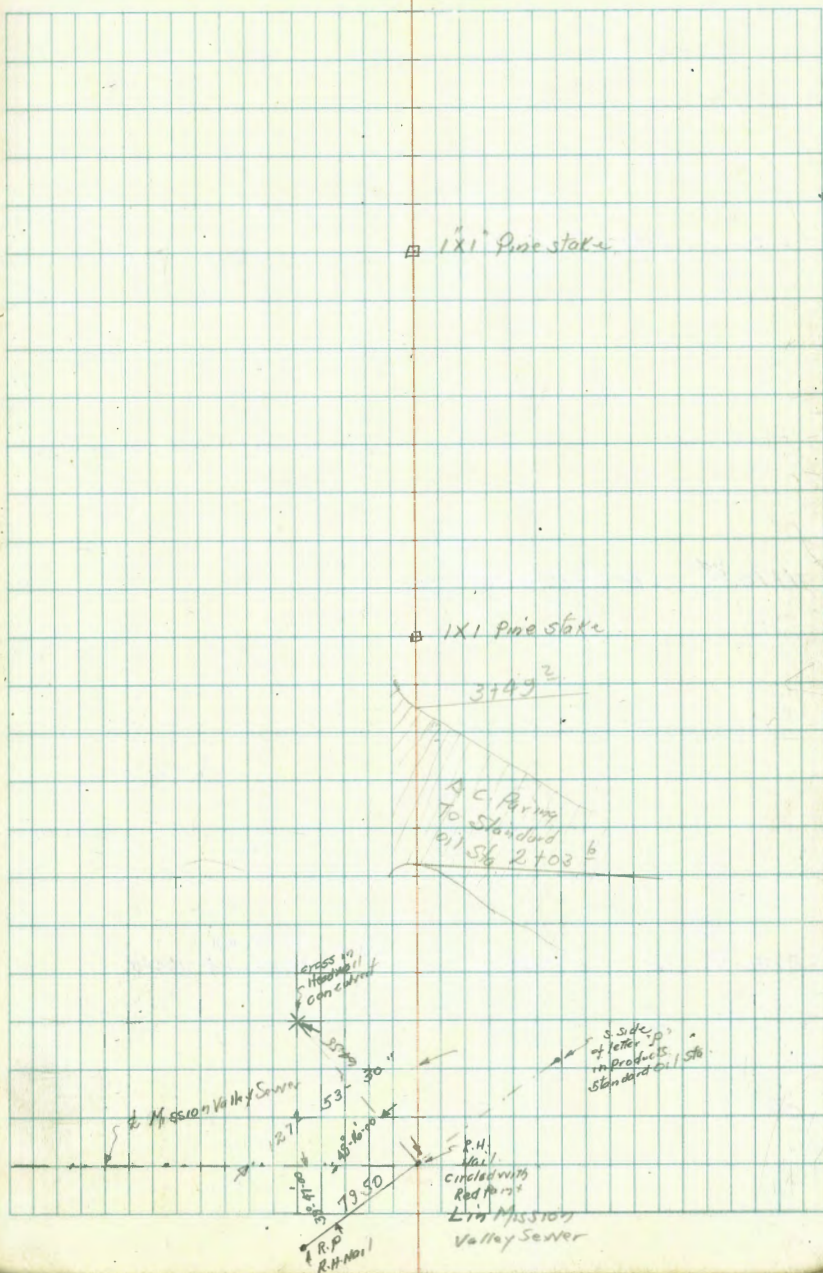 1"X1" Pine stake
1X1 Pine stake
3+49 2
A.C. Paving
To Standard
Oil Sta 2+03 6
cross in
Headwall
on culvert
S. side
of letter "P"
in Products
Standard Oil Sta
℄ Mission Valley Sewer
53- 30"
79.50
R.H.
Nail
Circled with
Red Paint
L in Mission
Valley Sewer
R.P
R.H. Nail